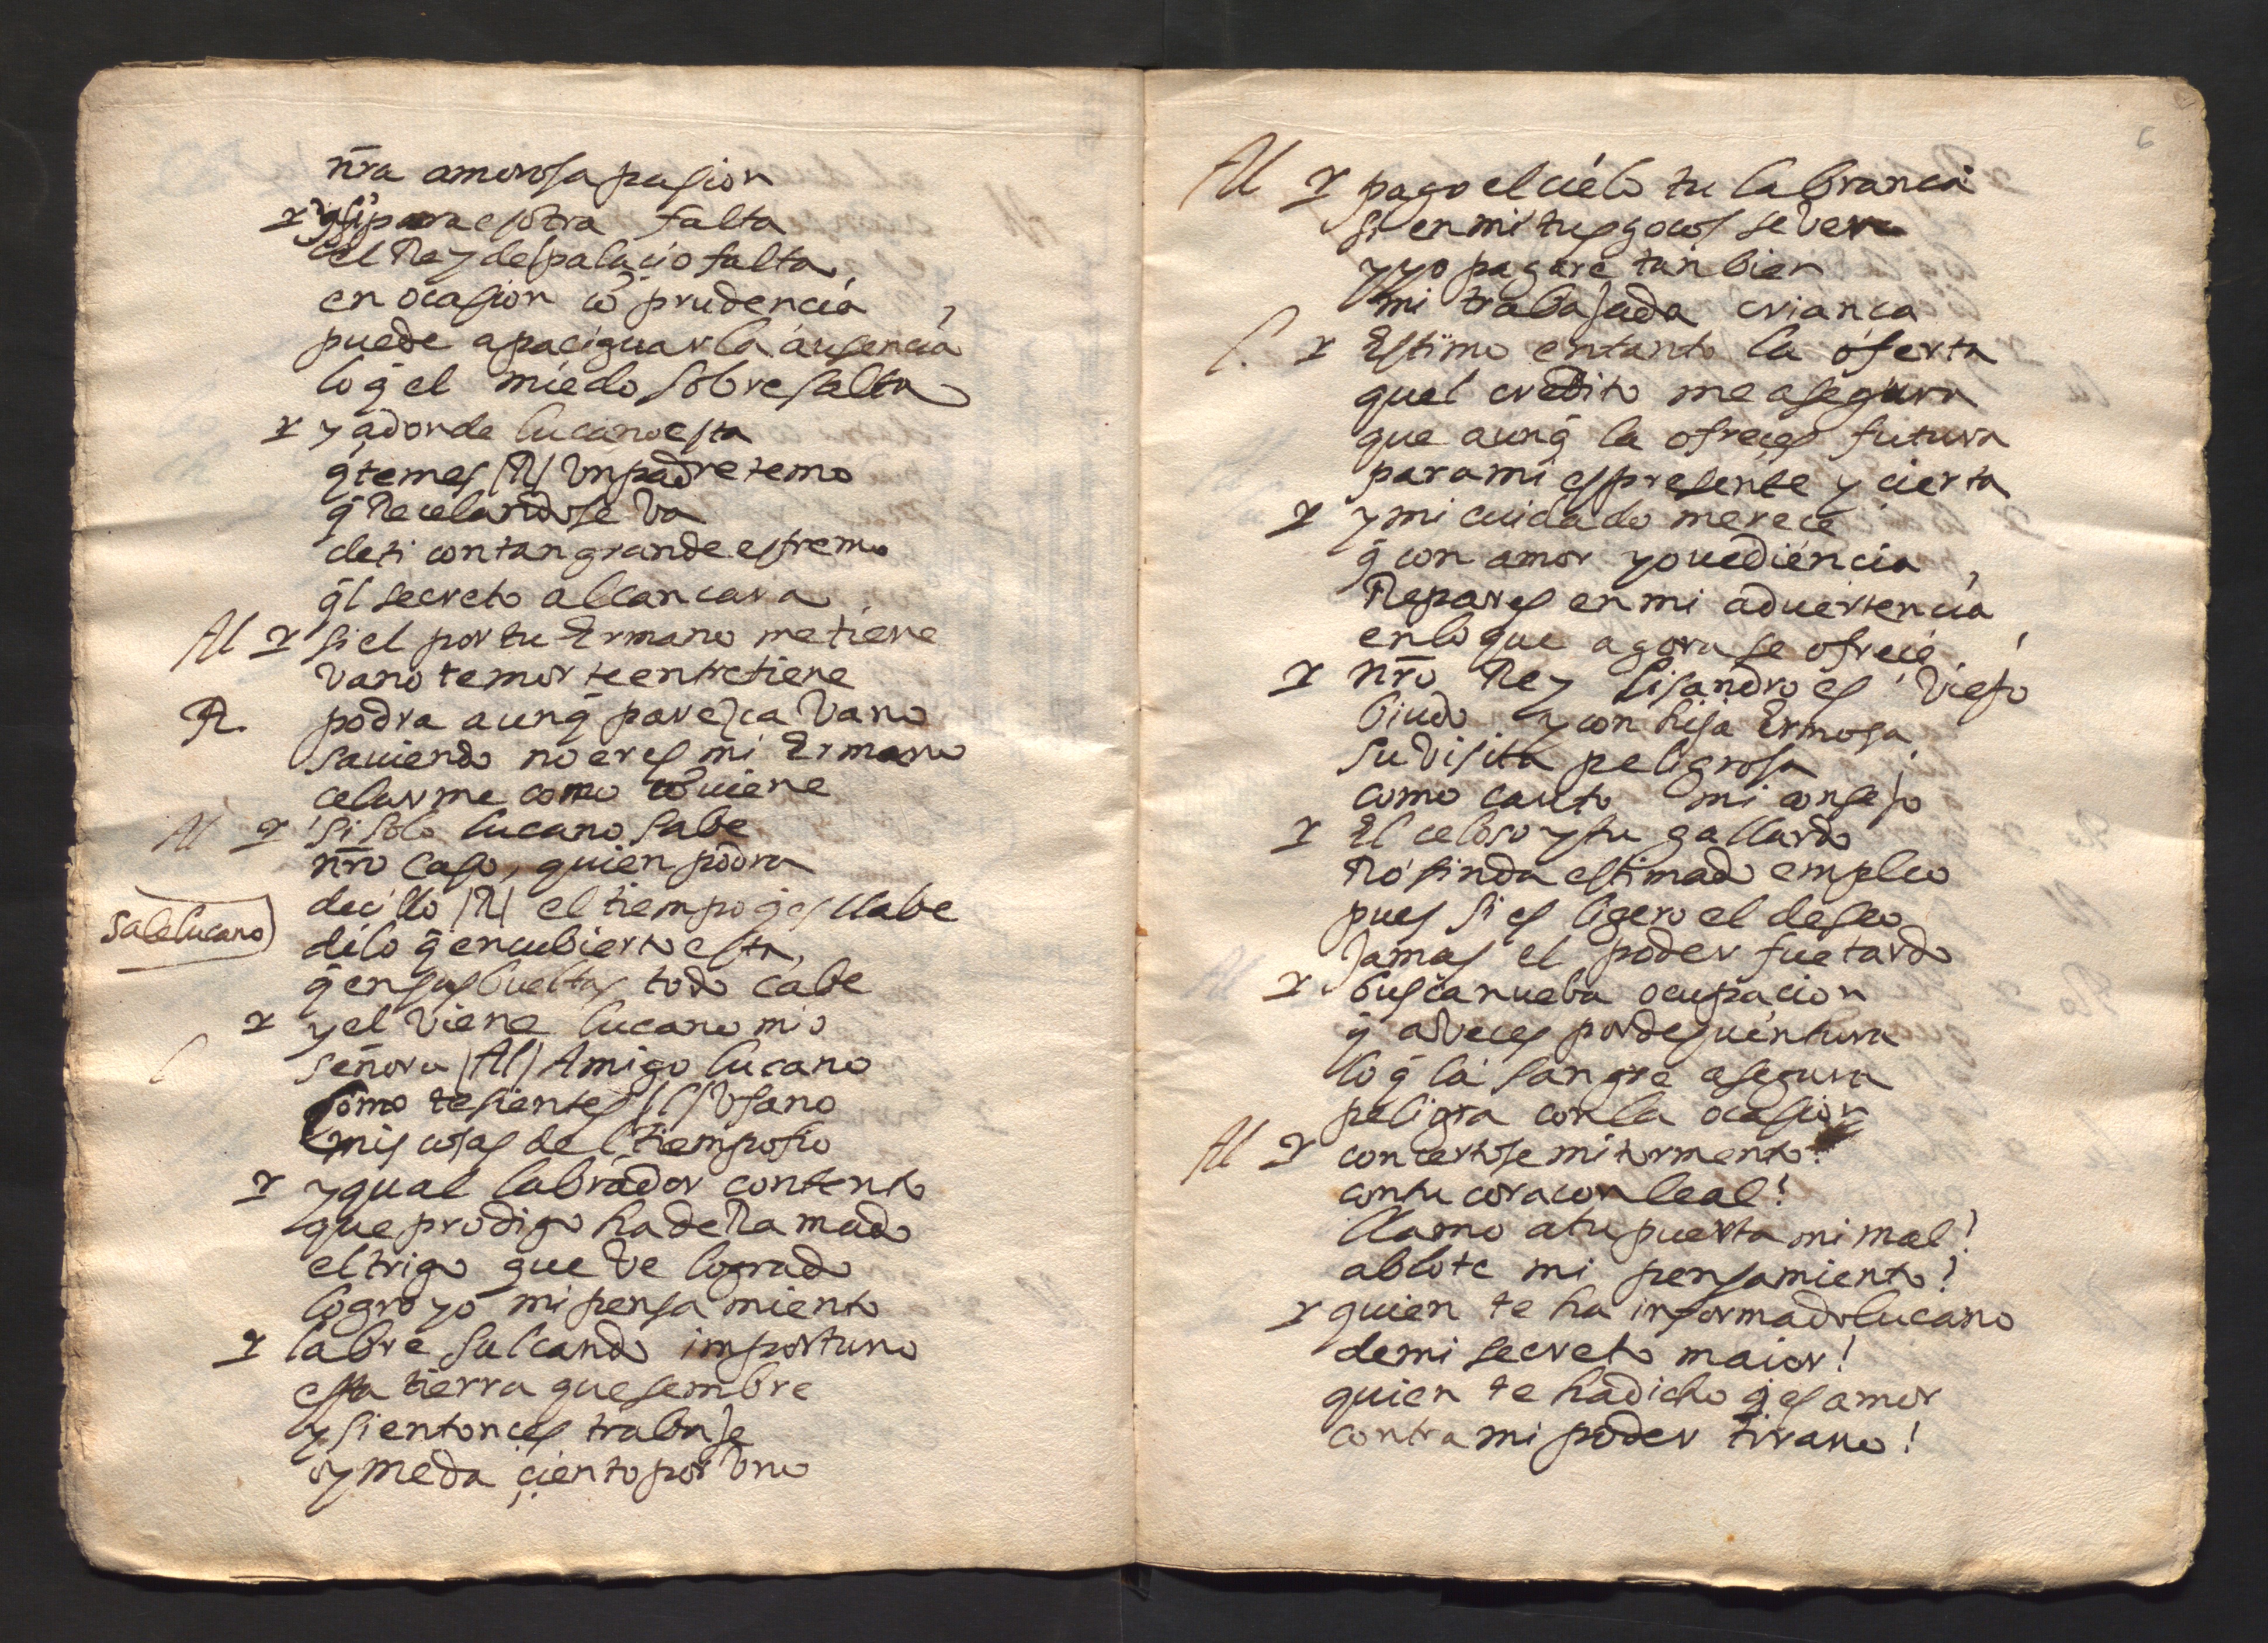 nr̃a amorosa pasion
r q̃ si para esotra falta
el Rey de palacio falta
en ocasion cõ prudencia
puede apaciguar la ausencia
lo q̃ el miedo sobresalta
r y adonde lucano esta
q̃ temes |R| Vn padre temo
q̃ Recelandose va
de ti con tan grande estremo
q̃l secreto alcancara
Al r si el por tu Ermano me tiene
vano temor te entretiene
R. podra aunq̃ parezca vano
sauiendo no eres mi Ermano
celarme como cõuiene
Al r si solo lucano sabe
nr̃o caso, quien podra
decillo |R| el tiempo q̃ es llabe
dilo q̃ encubierto esta
Sale lucano
q̃ en sus bueltas todo cabe
r y el viene lucano mio
l señora |Al| Amigo lucano
como te sientes |l| Vfano
mis cosas del tiempo fio
r ygual labrador contento
que prodigo ha deRamado
el trigo que ve logrado
logro yo mi pensamiento
r labre sulcando importuno
esta tierra que sembre
y si entonces trabaje
oy me da ciento por vno
6
Al r pago el cielo tu labranca
si en mi tus gocos se ven
y yo pagare tan bien
mi trabajada crianca
l. r Estimo entanto la oferta
quel credito me asegura
que aunq̃ la ofreces futura
para mi es presente y cierta
r y mi cuidado merece
q̃ con amor y ouediencia
Repares en mi aduertencia
en lo que agora se ofrece
r nr̃o Rey Lisandro es viejo
biudo y con hija Ermosa
su visita peligrosa
como cauto mi consejo
r El celoso y tu gallardo
Rosinda estimado empleo
pues si es ligero el deseo
Jamas el poder fue tardo
r busca nueba ocupacion
q̃ a veces por desuentura
lo q̃ la sangre asegura
peligra con la ocasion
Al r concertose mi tormento!
con tu coracon leal!
llamo a tu puerta mi mal!
ablote mi pensamiento!
r quien te ha informado lucano
de mi secreto maior!
quien te ha dicho q̃ es amor
contra mi poder tirano!